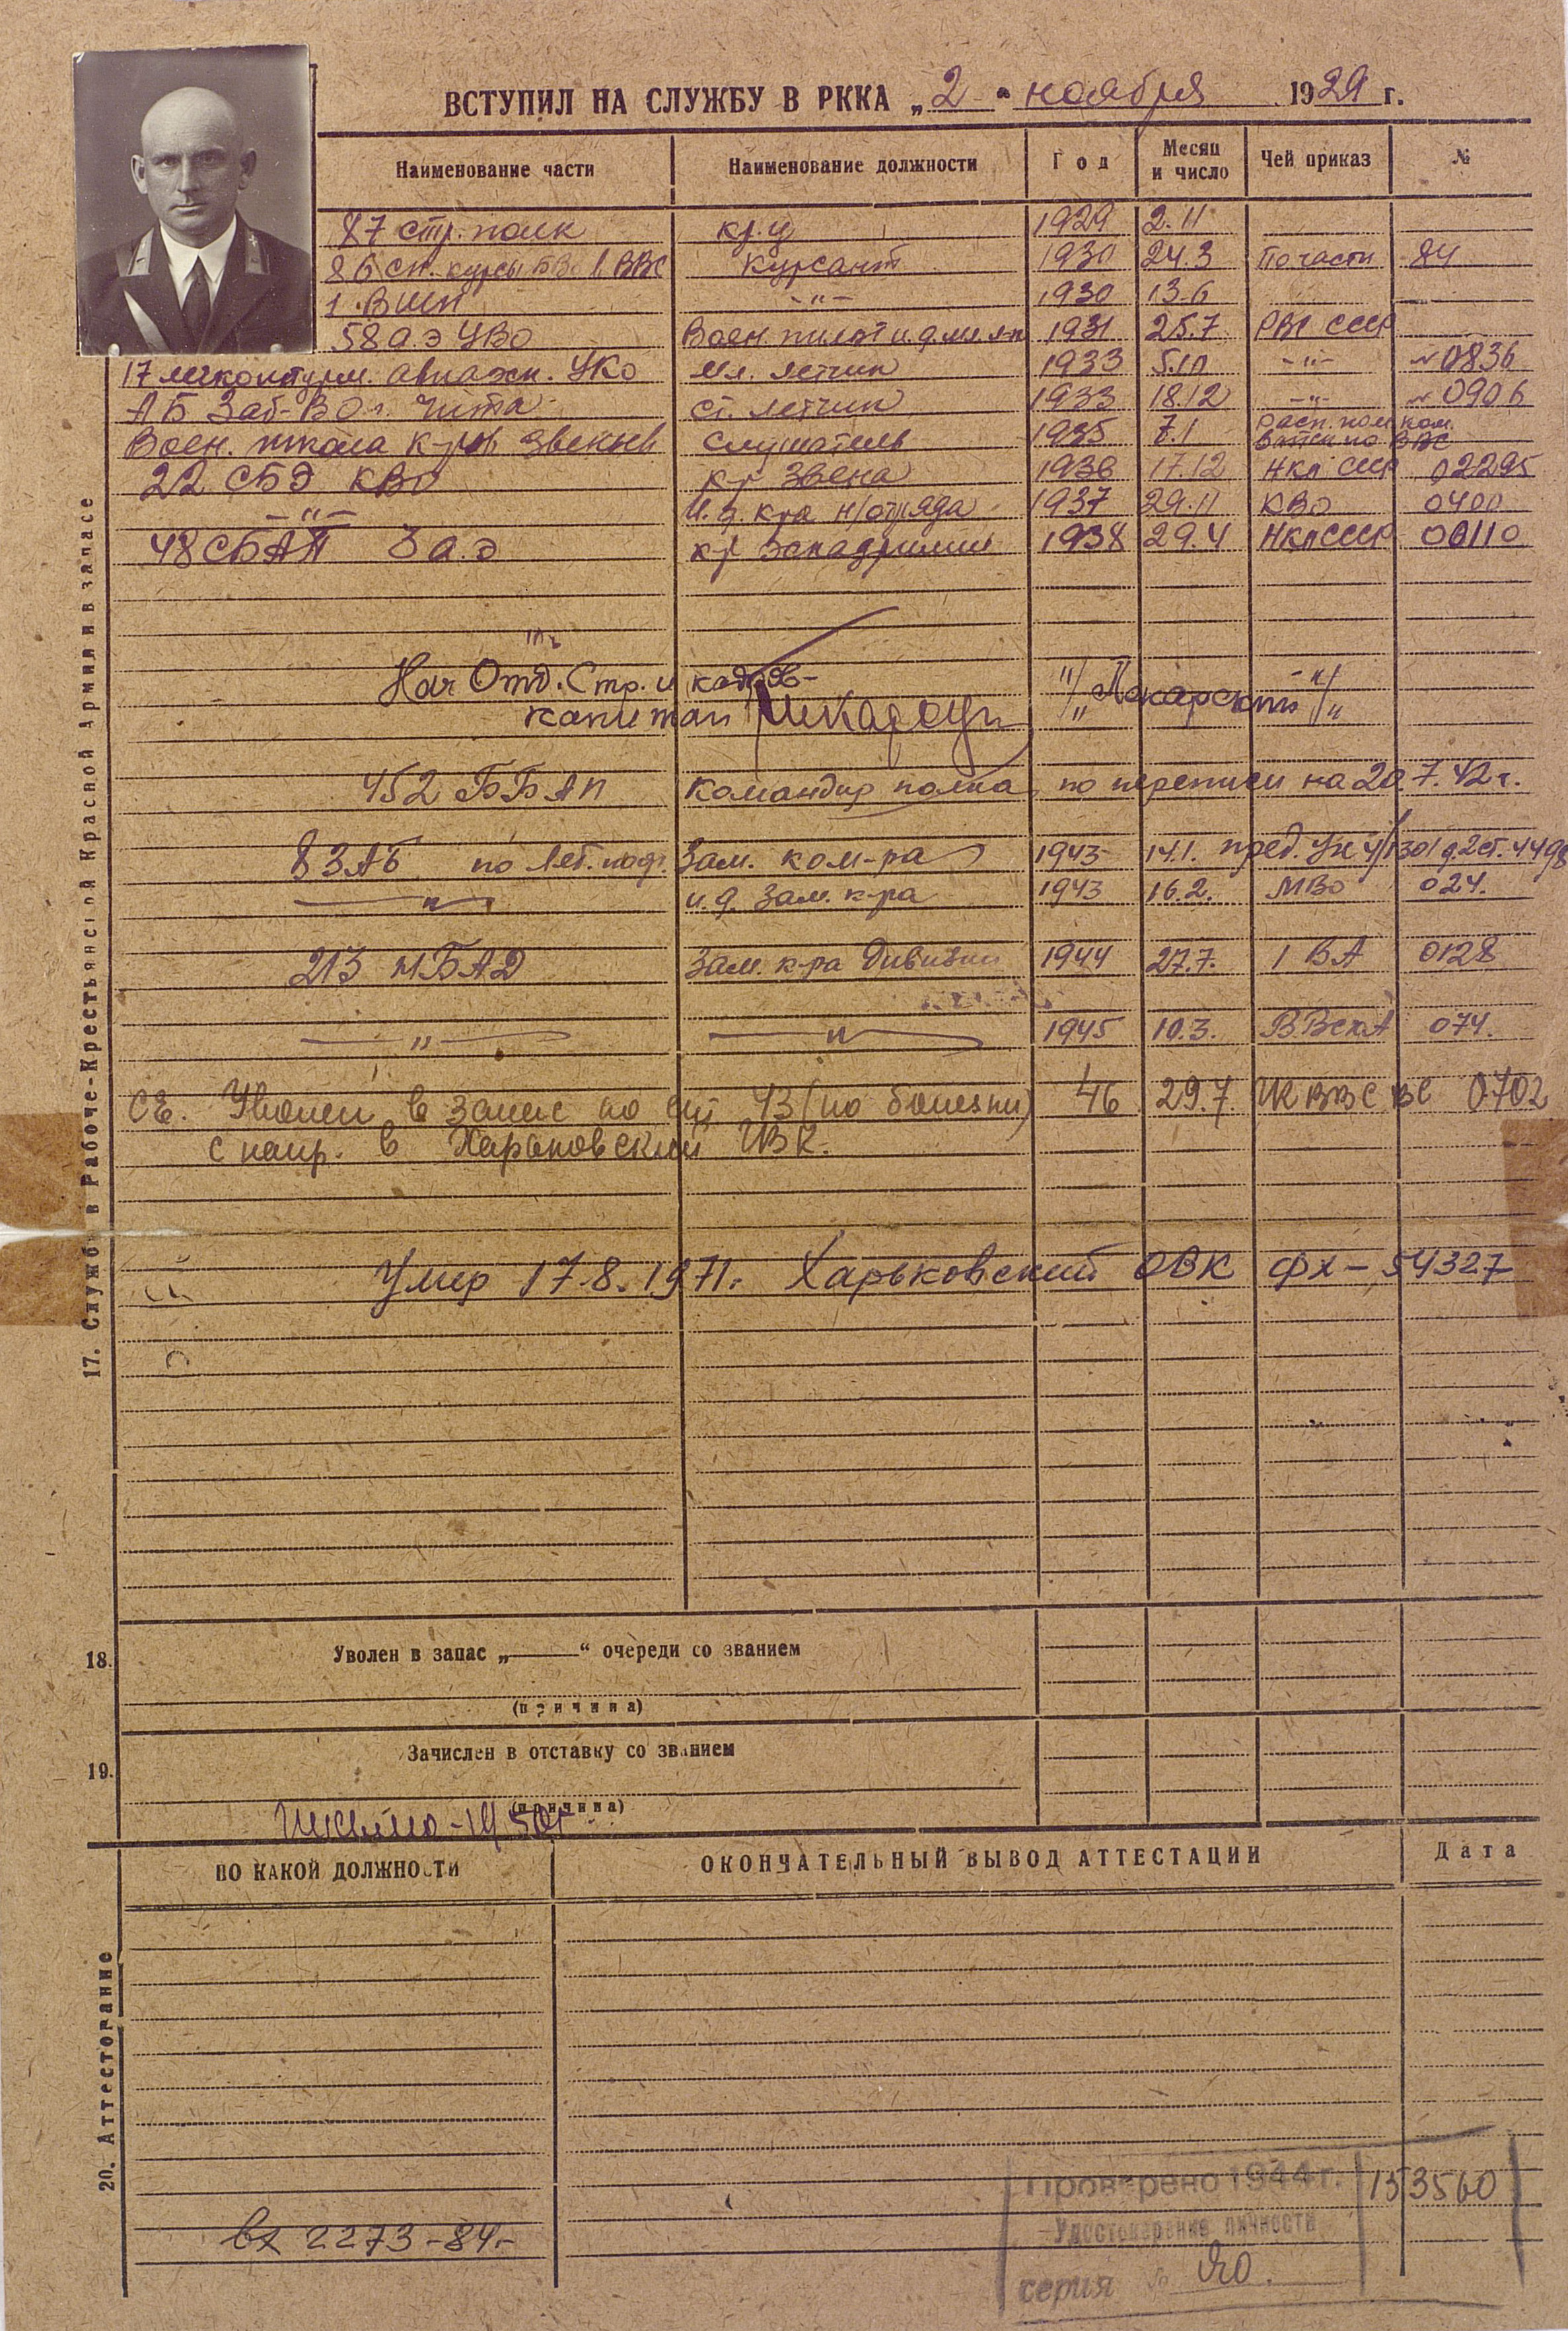 ВСТУПИЛ НА СЛУЖБУ В РККА „2“ ноября 1929 г.
Наименование части Наименование должности Год Месяц и число Чей приказ №
87 стр. полк кр-ц 1929 2.11
86 сп. курсы ВВС Курсант 1930 24.3 По части 84
1. ВШЛ -"- 1930 13.6
58 а.э УВО Воен. пилот 1931 25.7 РВС СССР
17 легкоштурм. авиаэск. УКО Мл. летчик 1933 5.10 -"- № 0836
АБ Заб-ВО г. Чита Ст. летчик 1933 18.12 -"- № 0906
Воен. школа к-ров звеньев Слушатель 1935 7.1 Расп. пом. ком. ВВС
22 СБЭ КВО к-р звена 1936 17.12 НКО СССР 02295
-"- И.д. к-ра н/отряда 1937 29.11 КВО 0400
48 СБАП 3 а.э к-р эскадрильи 1938 29.4 НКО СССР 00110
Нач Отд. Стр. и кадров-
капитан "/"Пекарский"/"
452 ББАП Командир полка по переписи на 20.7.42 г.
8 ЗАБ по лет. подг. Зам. ком-ра 1943 14.1. 4498
-"- и.д. зам. к-ра 1943 16.2. МВО 024.
213 нБАД Зам. к-ра дивизии 1944 27.7. 1 ВА 0128
-"- -"- 1945 10.3. ВВС КА 074.
Уволен в запас по ст 43 (по болезни) 46 29.7. ВВС ВС 0702
с напр. в Харьковский ГВК.
Умер 17.8.1971г. Харьковский ОВК фх-54327
17. Служба в Рабоче-Крестьянской Красной Армии и в запасе
18. Уволен в запас „——“ очереди со званием
(причина)
19. Зачислен в отставку со званием
(причина)
ПО КАКОЙ ДОЛЖНОСТИ ОКОНЧАТЕЛЬНЫЙ ВЫВОД АТТЕСТАЦИИ Дата
20. Аттестование
Проверено 1944 г. 153560
Удостоверение личности
серия №
вх 2273-84г